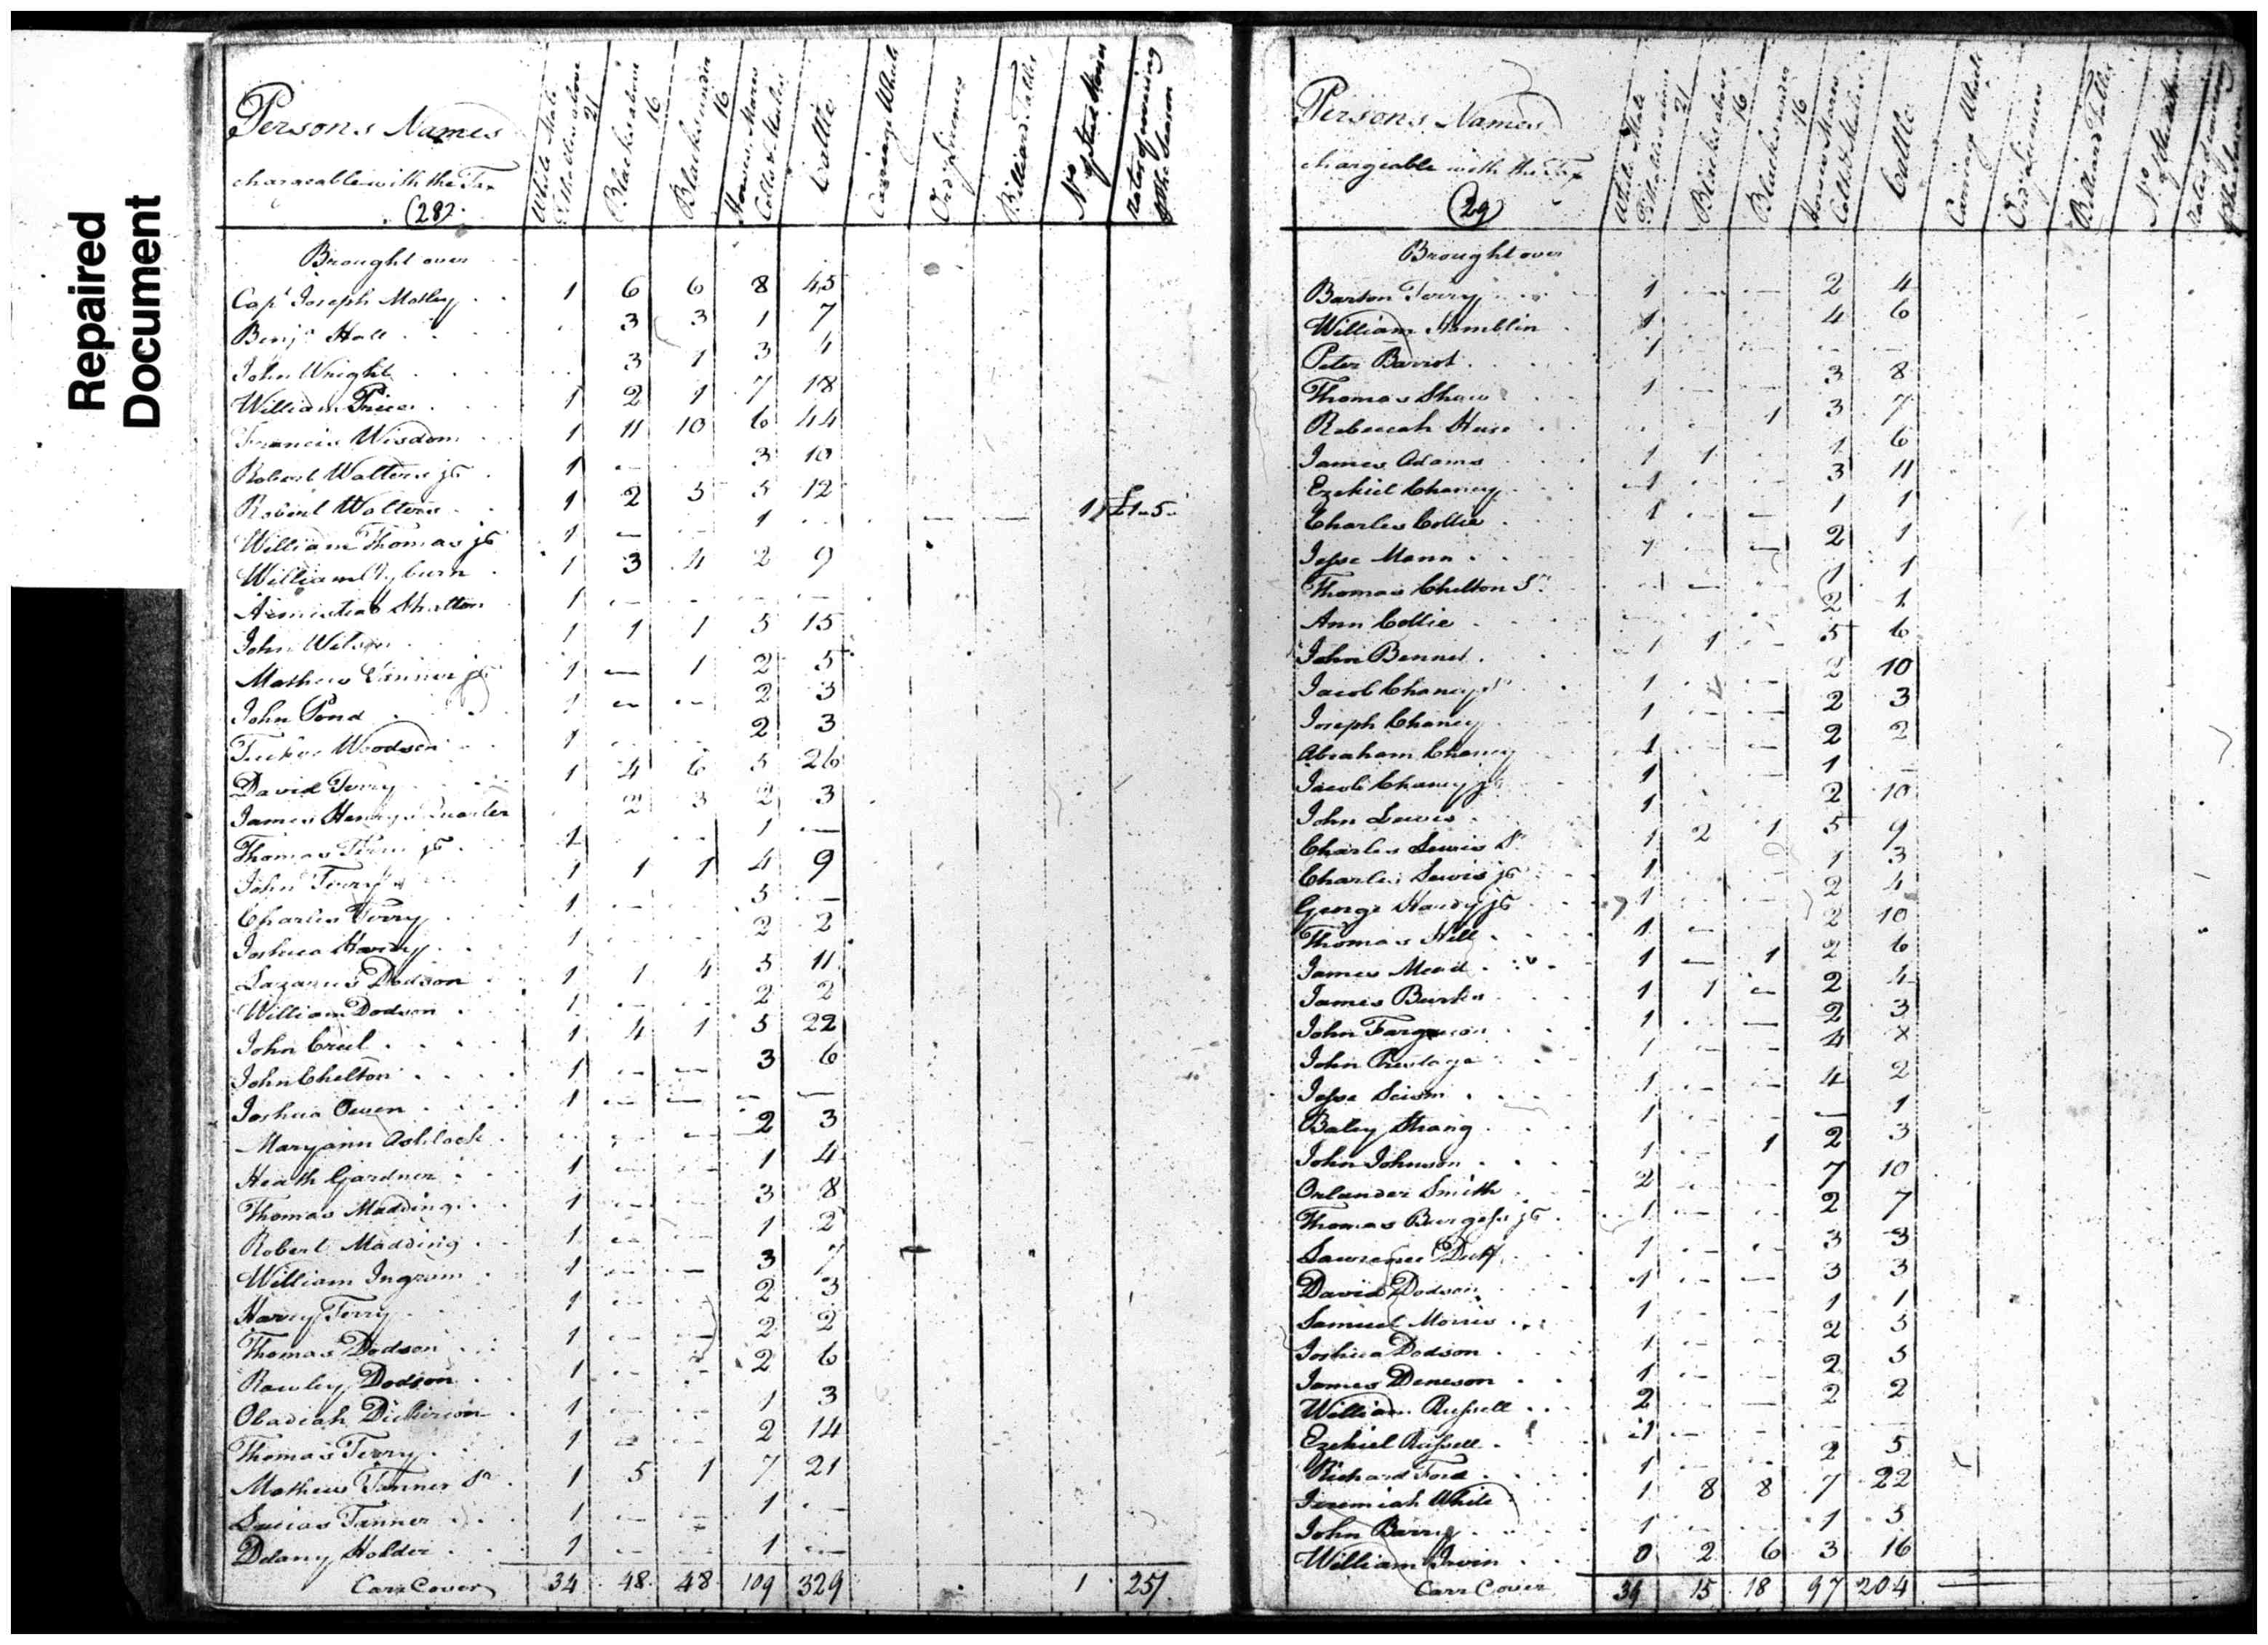 Repaired
Document
Persons Names
chargeable with the Tax
(28)
White Male Tithables above 21
Blacks above 16
Blacks under 16
Horses Mares Colts & Mules
Cattle
Carriage Wheels
Ord. Licences
Billiard Tables
No. of Stud Horses
Rates of covering the Season
Brought over
Capt Joseph Motley 1 6 6 8 45
Benja Hall 3 3 1 7
John Wright 3 1 3 4
William Price 1 2 1 7 18
Francis Wisdom 1 11 10 6 44
Robert Walters jr 1 - 3 10
Robert Walters 1 2 5 5 12 1 £1-5-
William Thomas jr 1 - - 1
William Clyburn 1 3 4 2 9
Shelton 1 - - - -
John Wilson 1 1 1 5 15
Mathew Tanner jr 1 - 1 2 5
John Pond 1 - - 2 3
Tucker Woodson 1 2 3
David Terry 1 4 6 5 26
James Henrys Quarter 2 3 2 3
Thomas jr 1 1 -
John Terry 1 1 1 4 9
Charles Terry 1 5 -
Joshua Hardy 1 2 2
Lazarus Dodson 1 1 4 5 11
William Dodson 1 2 2
John Creel 1 4 1 5 22
John Chelton 1 - - 3 6
Joshua Owen 1 - - - -
Maryann Ashlock - - 2 3
Heath Gardner 1 - - 1 4
Thomas Madding 1 - - 3 8
Robert Madding 1 - - 1 2
William Ingram 1 - - 3 7
Harvey Terry 1 - - 2 3
Thomas Dodson 1 - - 2 2
Rawley Dodson 1 - - 2 6
Obadiah Dickerson 1 - - 1 3
Thomas Terry 1 - - 2 14
Mathew Tanner Sr 1 5 1 7 21
Lucias Tanner 1 - - 1 -
Delany Holder 1 - - 1 -
Carr Cover 34 48 48 109 329 1 25/
Persons Names
chargeable with the Tax
(29)
White Male Tithables above 21
Blacks above 16
Blacks under 16
Horses Mares Colts & Mules
Cattle
Carriage Wheels
Ord Licences
Billiard Tables
No of Stud Horses
Rates of covering the Season
Brought over
Barton Terry 1 - - 2 4
William Hamblin 1 4 6
Peter Barrot 1 - - - -
Thomas Shaw 1 - - 3 8
Rebecah 1 3 7
James Adams 1 1 1 6
Ezekiel Chaney 1 3 11
Charles Collie 1 - - 1 1
Jesse Mann 1 - 2 1
Thomas Chelton Sr - - 1 1
Ann Collie - 2 1
John Bennet 1 1 - 5 6
Jacob Chaney Sr 1 - 2 10
Joseph Chaney 1 - - 2 3
Abraham Chaney 1 - - 2 2
Jacob Chaney jr 1 - 1 -
John Lewis 1 2 10
Charles Lewis Sr 1 2 1 5 9
Charles Lewis jr 1 1 3
George Hardy jr 1 2 4
Thomas Hill 1 - 2 10
James Mead 1 - 1 2 6
James Burks 1 1 - 2 4
John Farguson 1 - 2 3
John Prestage 1 - - 4 8
Jesse 1 - - 4 2
Baley Strang 1 - - - 1
John Johnson 1 - 1 2 3
Orlander Smith 2 7 10
Thomas Burgess jr 1 - - 2 7
Lawrence 1 - - 3 3
David Dodson 1 - - 3 3
Samuel Morris 1 - - 1 1
Joshua Dodson 1 - - 2 3
James Deneson 1 - - 2 5
William Russell 2 - - 2 2
Ezekiel Russell 1 - - - -
Richard Ford 1 - - 2 5
Jeremiah White 1 8 8 7 22
John Barry 1 - - 1 5
William Irvin 0 2 6 3 16
Carr Cover 39 15 18 97 204